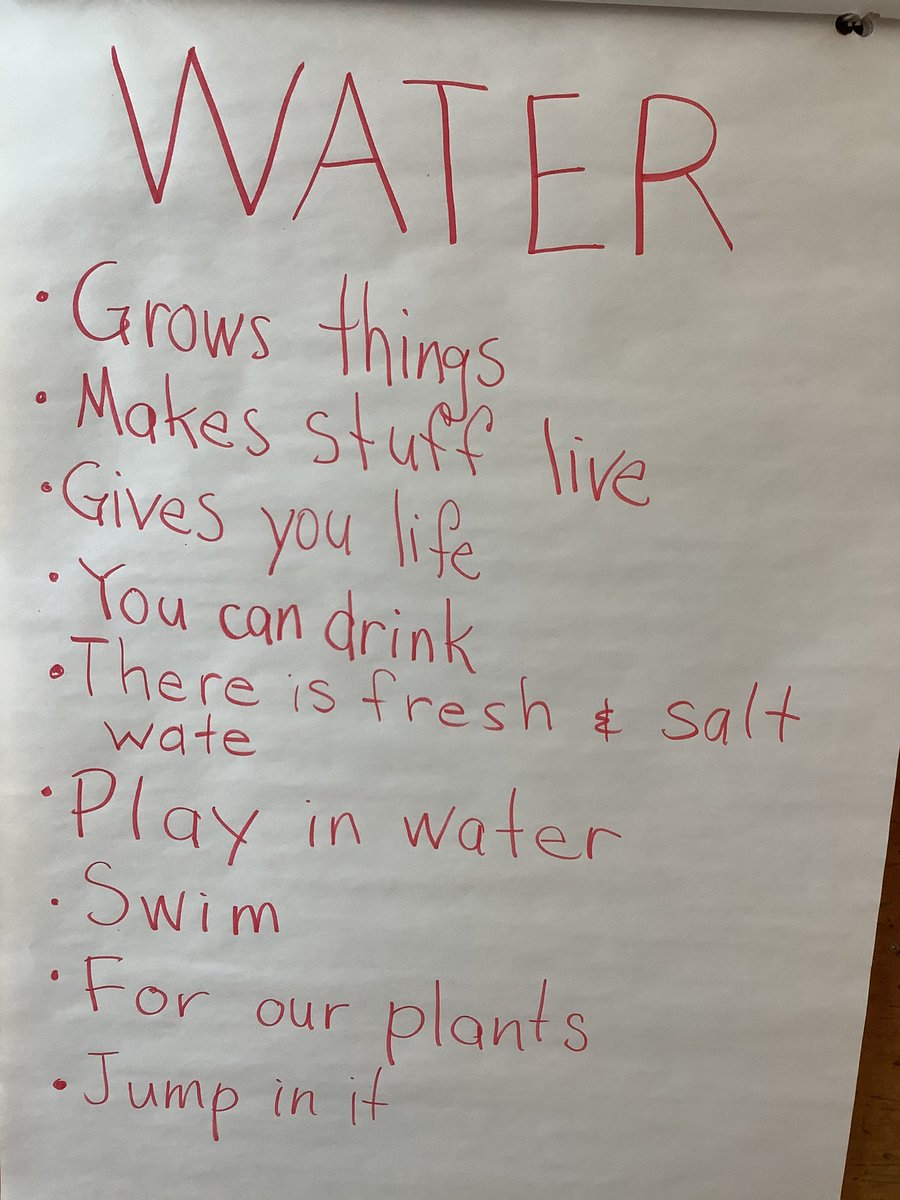 WATER
• Grows things
• Makes stuff live
• Gives you life
• You can drink
• There is fresh & salt
wate
• Play in water
• Swim
• For our plants
• Jump in it